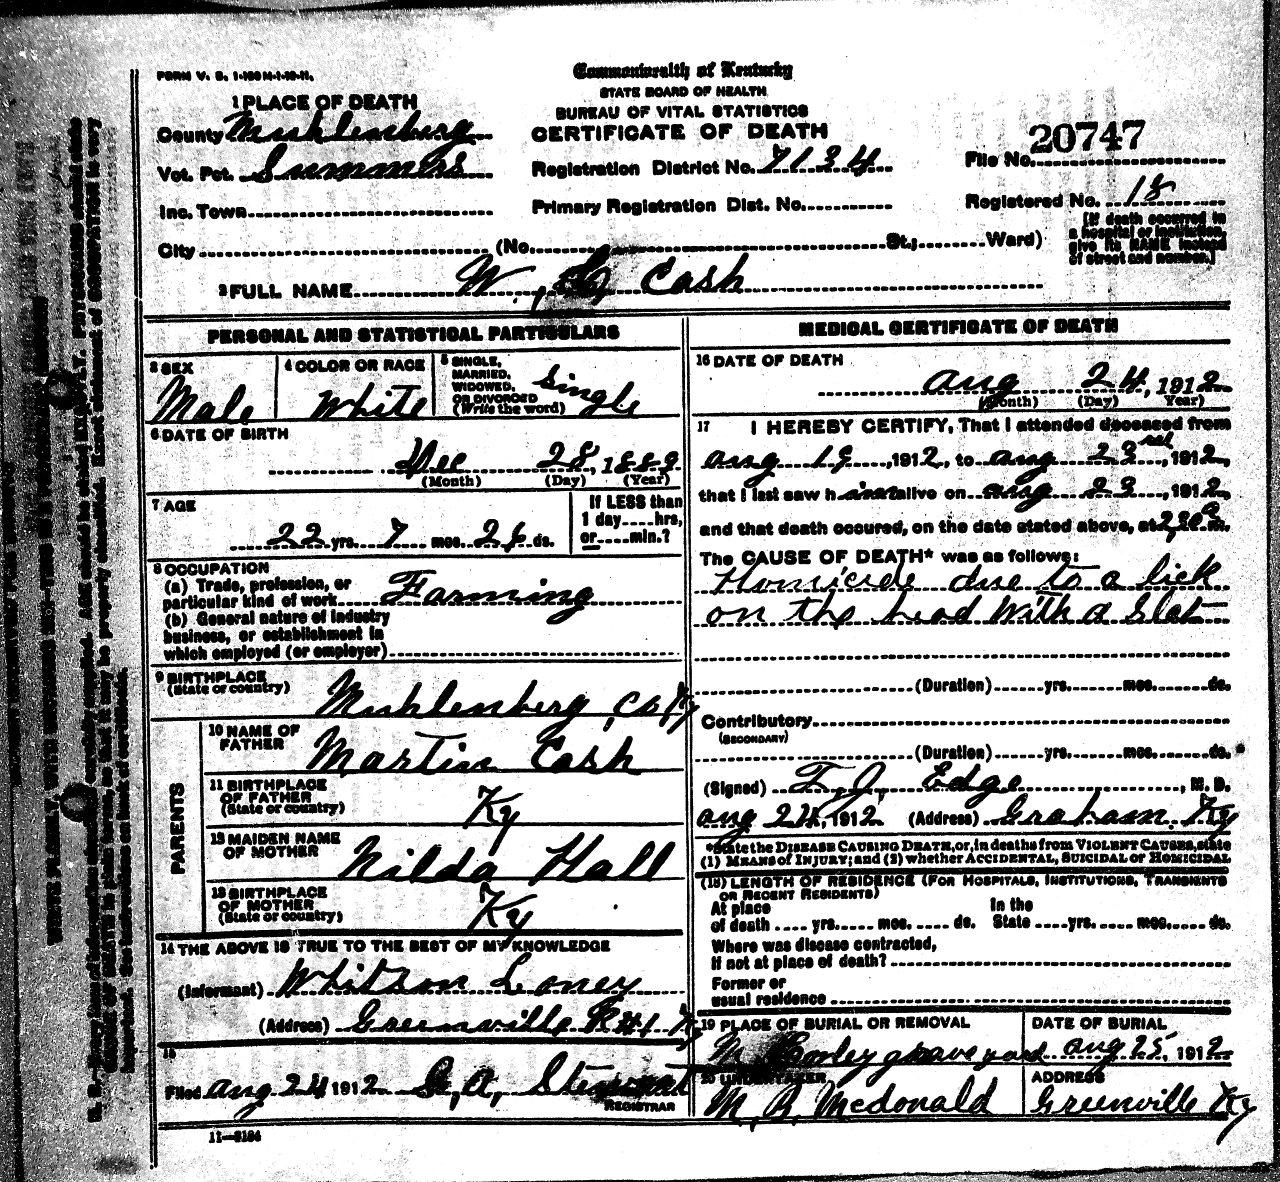 FORM V. S. 1-100M-1-10-11.
Commonwealth of Kentucky
STATE BOARD OF HEALTH
BUREAU OF VITAL STATISTICS
CERTIFICATE OF DEATH
1 PLACE OF DEATH
County Muhlenberg
Vot. Pct. Summers
Inc. Town
City (No. St.; Ward)
Registration District No. 7134
Primary Registration Dist. No.
File No. 20747
Registered No. 18
[If death occurred in
a hospital or institution,
give its NAME instead
of street and number.]
2 FULL NAME W. Cash
PERSONAL AND STATISTICAL PARTICULARS
3 SEX
Male
4 COLOR OR RACE
White
5 SINGLE,
MARRIED,
WIDOWED,
OR DIVORCED
(Write the word)
Single
6 DATE OF BIRTH
Dec 28, 1889
(Month) (Day) (Year)
7 AGE
22 yrs. 7 mos. 26 ds.
If LESS than
1 day....hrs,
or....min.?
8 OCCUPATION
(a) Trade, profession, or
particular kind of work Farming
(b) General nature of industry
business, or establishment in
which employed (or employer)
9 BIRTHPLACE
(State or country)
Muhlenberg, Co Ky
PARENTS
10 NAME OF
FATHER
Martin Cash
11 BIRTHPLACE
OF FATHER
(State or country)
Ky
12 MAIDEN NAME
OF MOTHER
Nilda Hall
13 BIRTHPLACE
OF MOTHER
(State or country)
Ky
14 THE ABOVE IS TRUE TO THE BEST OF MY KNOWLEDGE
(Informant) Whitson Loney
(Address) Greenville R#1 Ky
15
Filed Aug 24 1912 G, A, Stewart
REGISTRAR
11—3184
MEDICAL CERTIFICATE OF DEATH
16 DATE OF DEATH
Aug 24, 1912
(Month) (Day) Year)
17 I HEREBY CERTIFY, That I attended deceased from
Aug 19, 1912, to Aug 23rd, 1912,
that I last saw him alive on Aug 23, 1912
and that death occured, on the date stated above, at m.
The CAUSE OF DEATH* was as follows:
Homicide due to a lick
on the head with a Slat
(Duration) yrs. mos. ds.
Contributory
(SECONDARY)
(Duration) yrs. mos. ds.
(Signed) T. J. Edge, M. D.
Aug 24, 1912 (Address) Graham, Ky
*State the DISEASE CAUSING DEATH, or, in deaths from VIOLENT CAUSES, state
(1) MEANS OF INJURY; and (2) whether ACCIDENTAL, SUICIDAL or HOMICIDAL
(18) LENGTH OF RESIDENCE (FOR HOSPITALS, INSTITUTIONS, TRANSIENTS
OR RECENT RESIDENTS)
At place In the
of death .... yrs. .... mos. .... ds. State .... yrs. .... mos. .... ds.
Where was disease contracted,
If not at place of death?
Former or
usual residence
19 PLACE OF BURIAL OR REMOVAL
graveyard
DATE OF BURIAL
Aug 25, 1912
20 UNDERTAKER
M, R, McDonald
ADDRESS
Greenville Ky